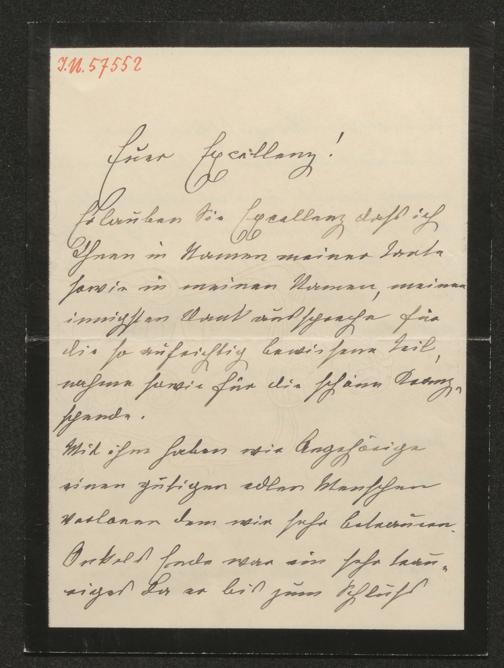 I.N. 57552
Euer Excellenz!
Erlauben Sie Excellenz daß ich
Ihnen in Namen meiner Tante
sowie in meinen Namen, meinen
innigsten Dank ausspreche für
die so aufrichtig bewissene Teil,
nahme sowie für die schöne Kranz,
spende.
Mit ihm haben wir Angehörige
einen gütigen edlen Menschen
verloren dem wir sehr betrauern.
Onkels Ende war ein sehr trau,
riges da er bis zum Schluß